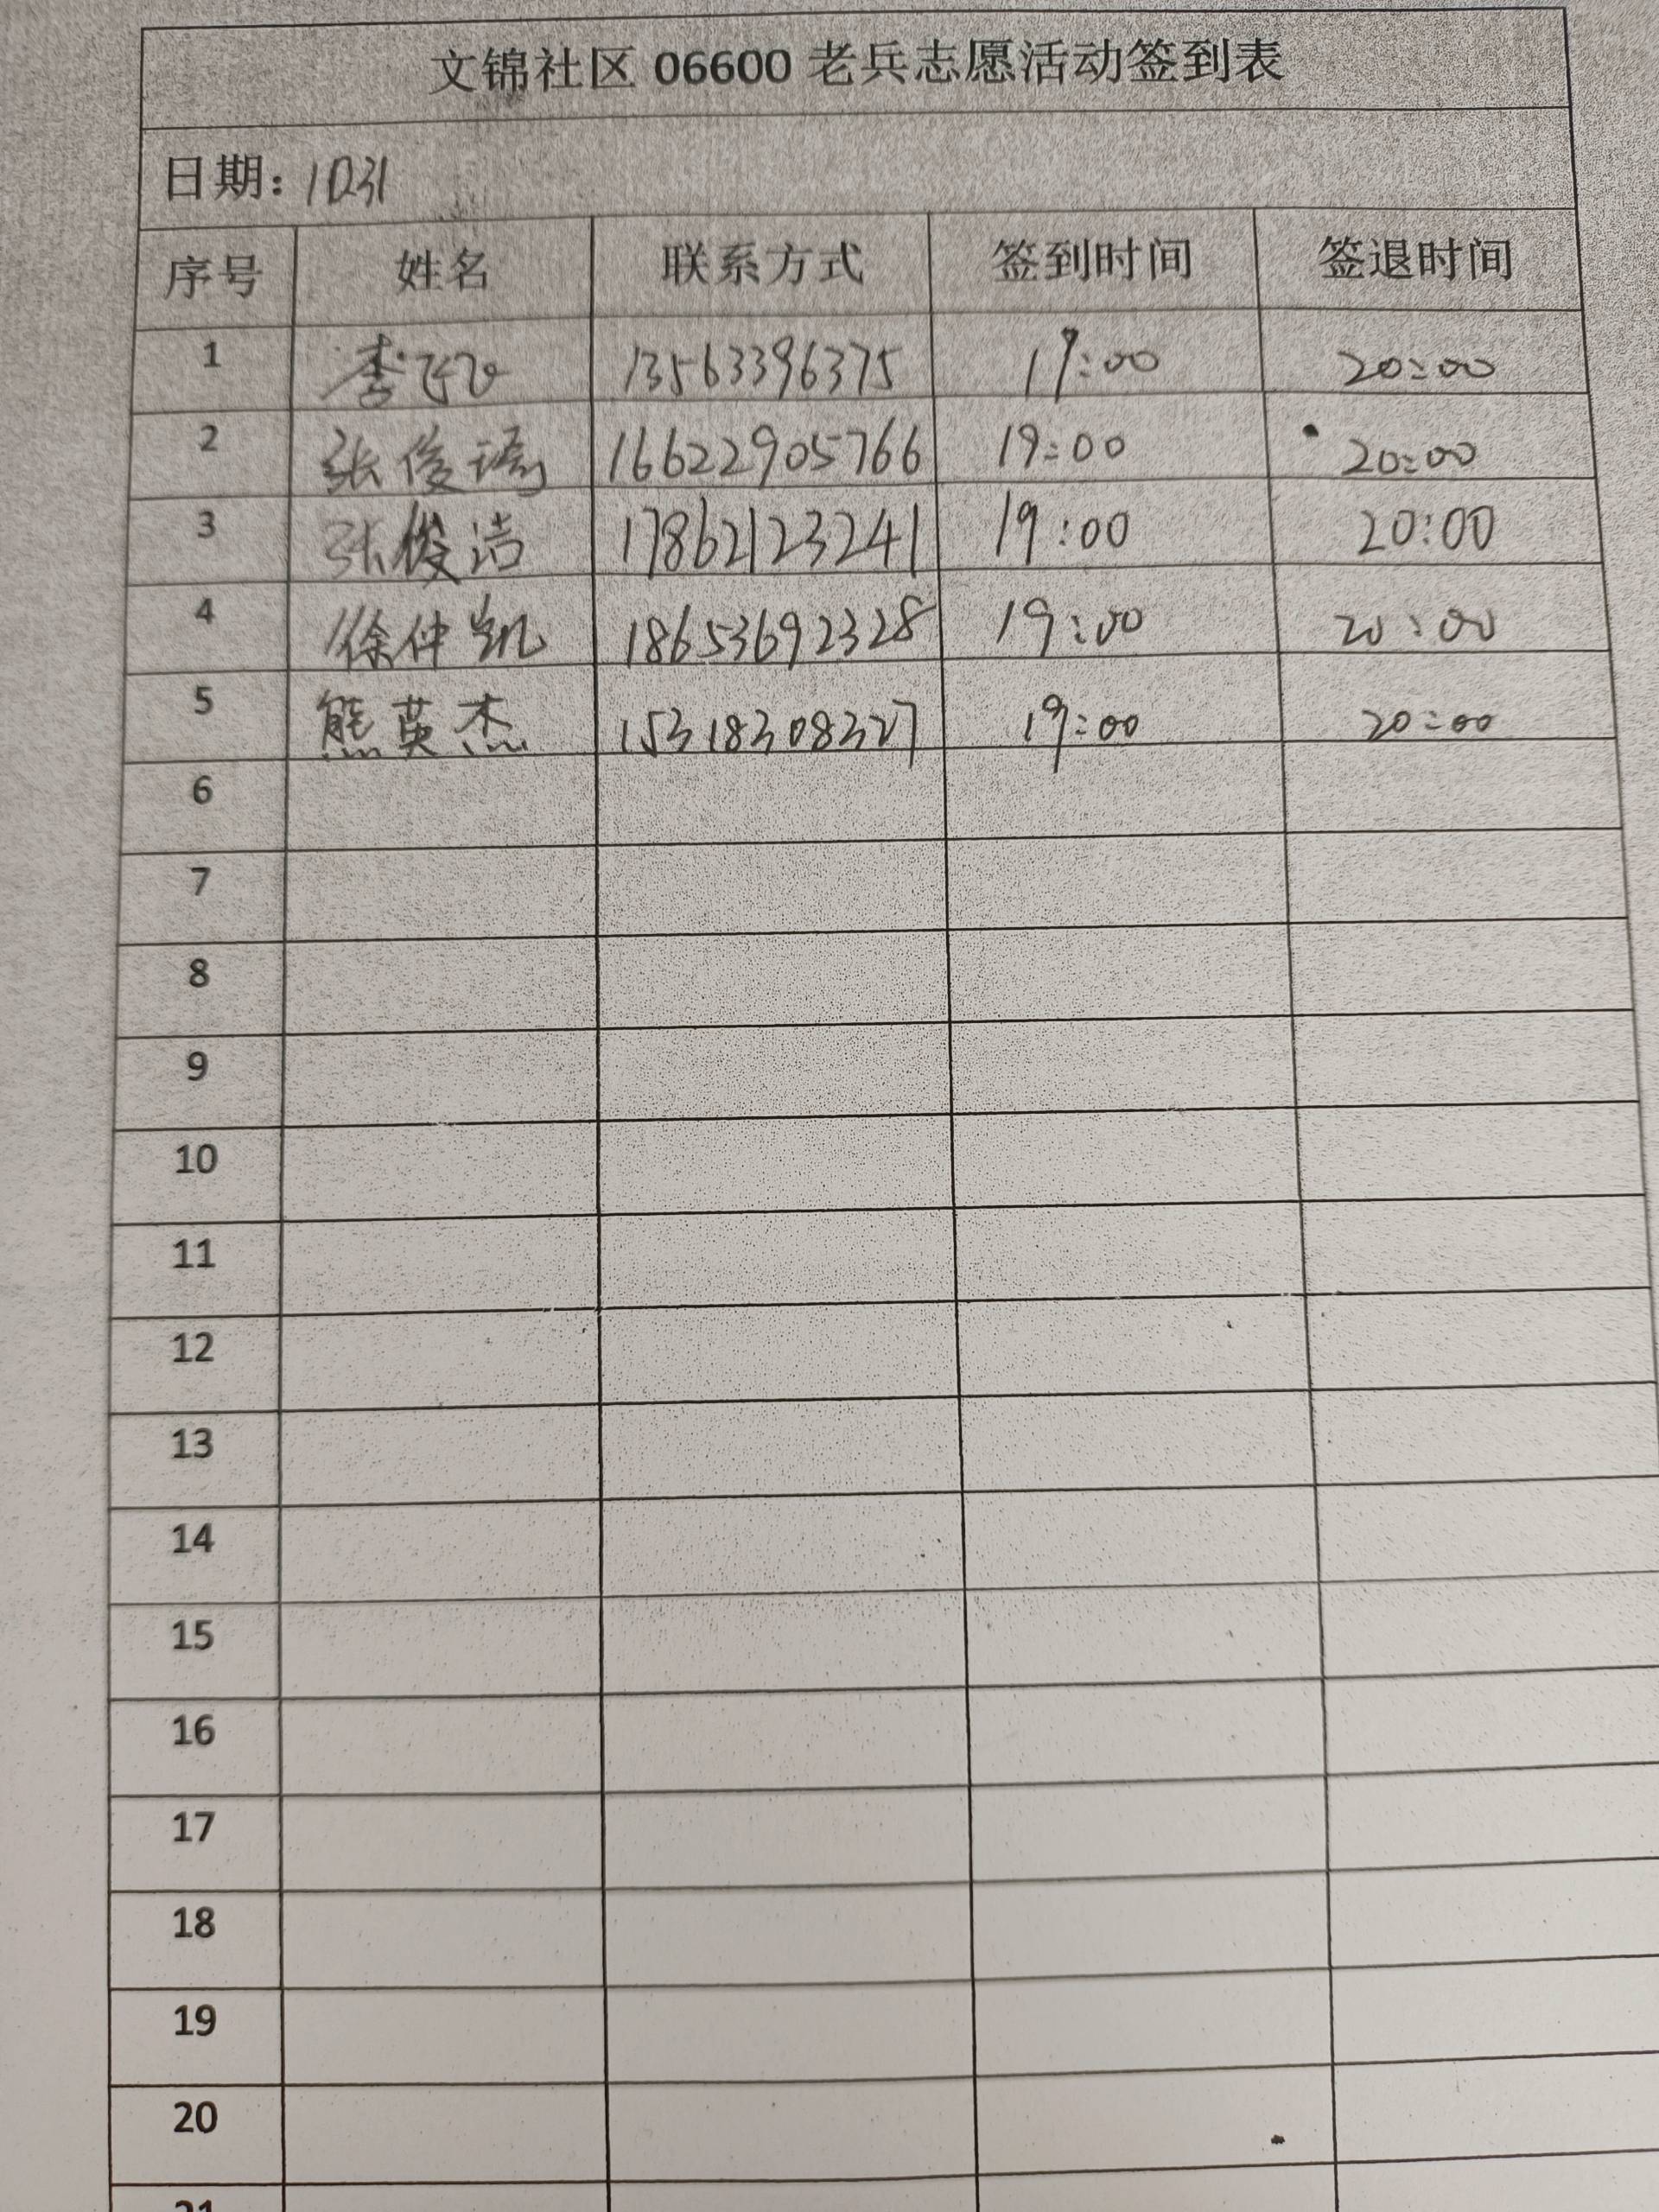 文锦社区 06600 老兵志愿活动签到表
日期: 1031
序号 姓名 联系方式 签到时间 签退时间
1 李飞飞 13563396375 19:00 20:00
2 张俊 16622905766 19:00 20:00
3 张俊洁 17862123241 19:00 20:00
4 徐仲凯 18653692328 19:00 20:00
5 熊英杰 15318308327 19:00 20:00
6
7
8
9
10
11
12
13
14
15
16
17
18
19
20
21